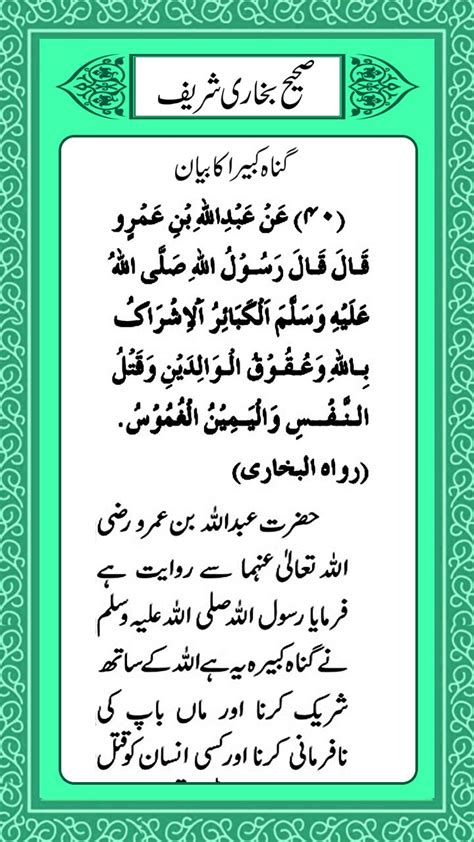 صحیح بخاری شریف
گناہ کبیرا کا بیان
(۴۰) عَنْ عَبْدِاللّٰهِ بْنِ عَمْرٍو
قَالَ قَالَ رَسُوْلُ اللّٰهِ صَلَّى اللّٰهُ
عَلَيْهِ وَسَلَّمَ اَلْكَبَائِرُ اَلْاِشْرَاكُ
بِاللّٰهِ وَعُقُوْقُ الْوَالِدَيْنِ وَقَتْلُ
النَّفْسِ وَالْيَمِيْنُ الْغُمُوْسُ.
(رواه البخاری)
حضرت عبداللہ بن عمرو رضی
اللہ تعالیٰ عنہما سے روایت ہے
فرمایا رسول اللہ صلی اللہ علیہ وسلم
نے گناہ کبیرہ یہ ہے اللہ کے ساتھ
شریک کرنا اور ماں باپ کی
نافرمانی کرنا اور کسی انسان کو قتل